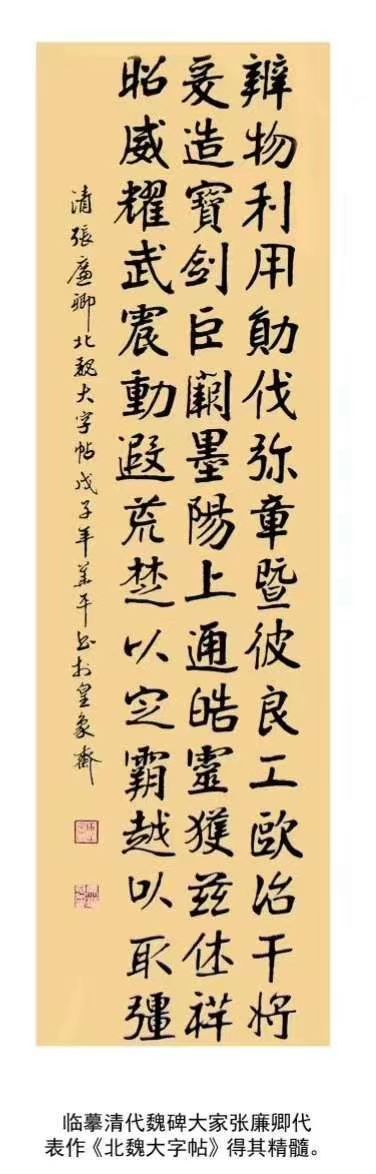 辨物利用勛伐弥章暨彼良工歐冶干將
爰造寶劍巨闕墨陽上通皓靈獲茲休祥
昭威耀武震動遐荒楚以定霸越以取彊
清張廉卿北魏大字帖戊子年羊平书於皇象齋
临摹清代魏碑大家张廉卿代
表作《北魏大字帖》得其精髓。